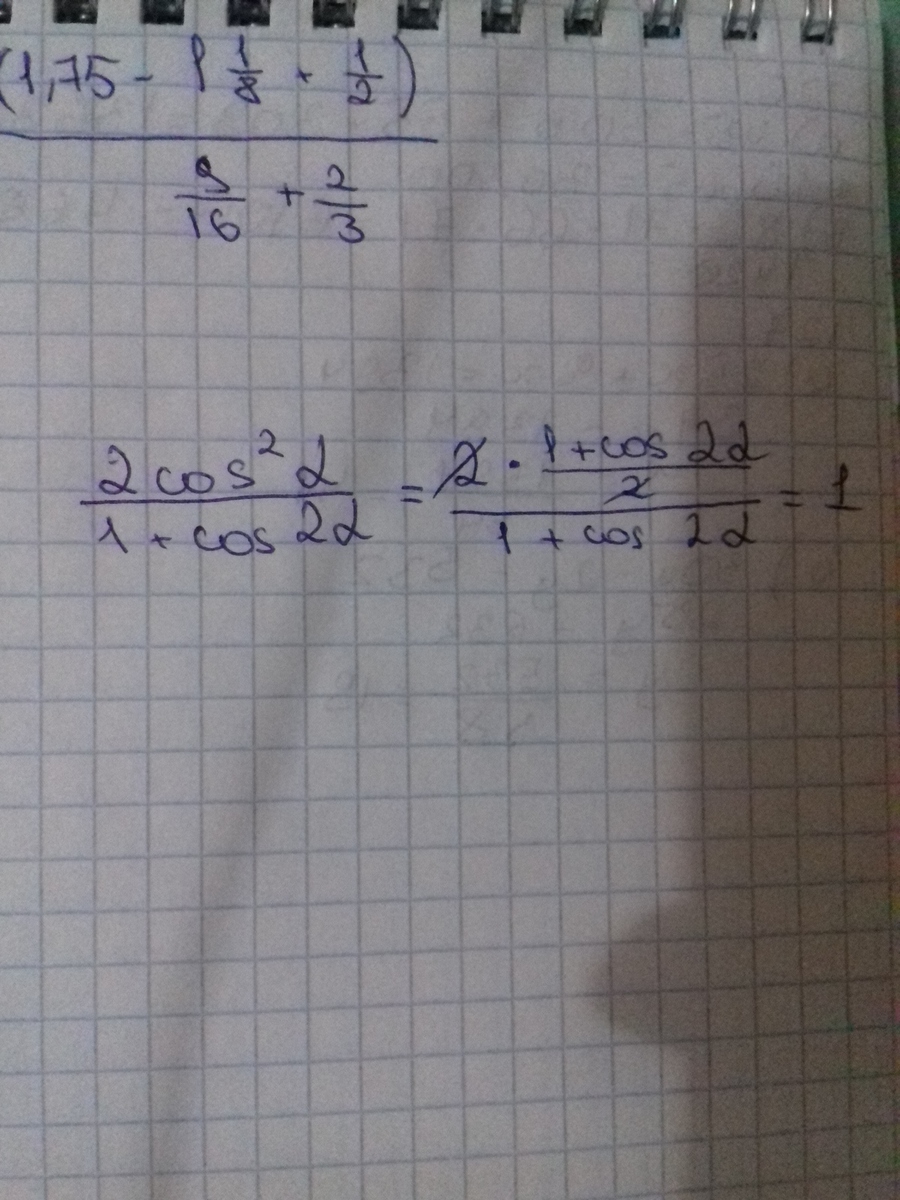 (1,75 - 1 1/8 + 1/2)
9/16 + 2/3
2 cos² α / 1 + cos 2α = 2 · 1 + cos 2α / 2 / 1 + cos 2α = 1